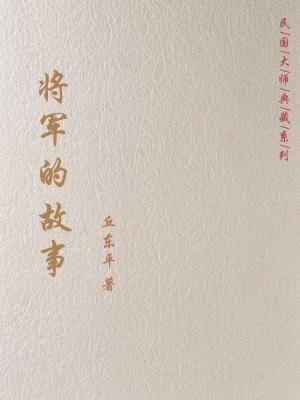 民国大师典藏系列
将军的故事
丘东平 著